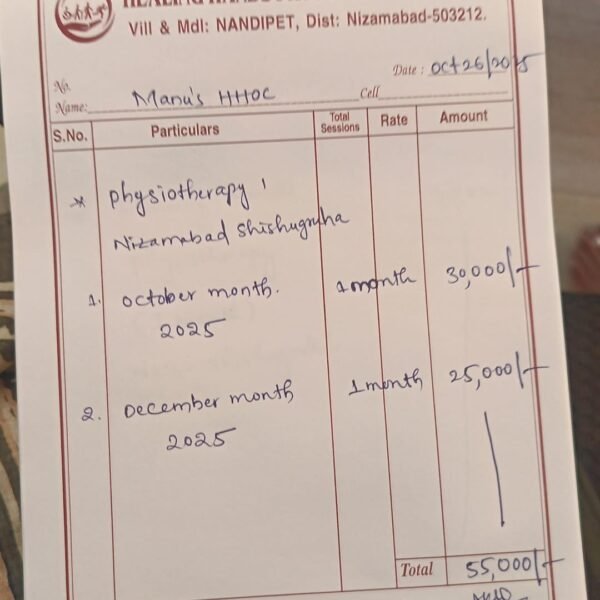 Vill & Mdl: NANDIPET, Dist: Nizamabad-503212.
Date: Oct 26/2025
No.
Name: Manu's HHOC Cell
S.No. Particulars Total Sessions Rate Amount
* physiotherapy '
Nizamabad Shishugruha
1. October month. 1 month 30,000/-
2025
2. December month 1 month 25,000/-
2025
Total 55,000/-